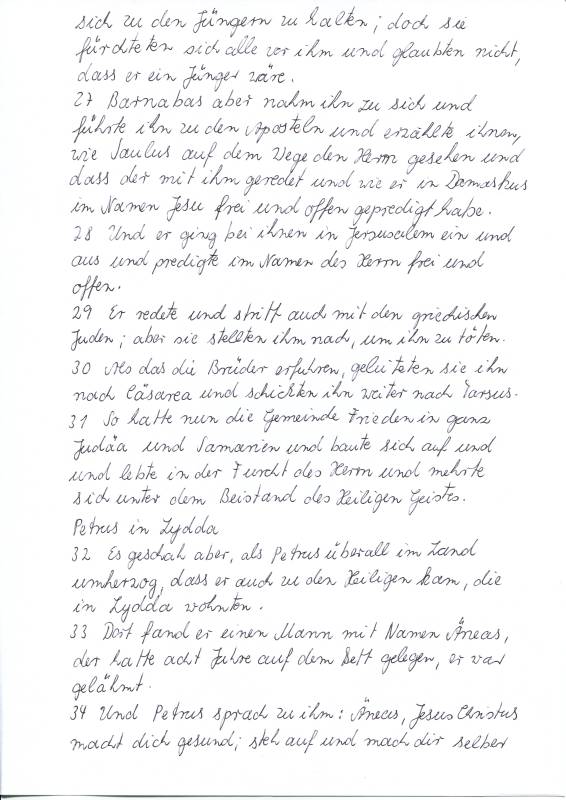 sich zu den Jüngern zu halten; doch sie
fürchteten sich alle vor ihm und glaubten nicht,
dass er ein Jünger wäre.
27 Barnabas aber nahm ihn zu sich und
führte ihn zu den Aposteln und erzählte ihnen,
wie Saulus auf dem Wege den Herrn gesehen und
dass der mit ihm geredet und wie er in Damaskus
im Namen Jesu frei und offen gepredigt habe.
28 Und er ging bei ihnen in Jerusalem ein und
aus und predigte im Namen des Herrn frei und
offen.
29 Er redete und stritt auch mit den griechischen
Juden; aber sie stellten ihm nach, um ihn zu töten.
30 Als das die Brüder erfuhren, geleiteten sie ihn
nach Cäsarea und schickten ihn weiter nach Tarsus.
31 So hatte nun die Gemeinde Frieden in ganz
Judäa und Samarien und baute sich auf und
und lebte in der Furcht des Herrn und mehrte
sich unter dem Beistand des Heiligen Geistes.
Petrus in Lydda
32 Es geschah aber, als Petrus überall im Land
umherzog, dass er auch zu den Heiligen kam, die
in Lydda wohnten.
33 Dort fand er einen Mann mit Namen Äneas,
der hatte acht Jahre auf dem Bett gelegen, er war
gelähmt.
34 Und Petrus sprach zu ihm: Äneas, Jesus Christus
macht dich gesund; steh auf und mach dir selber